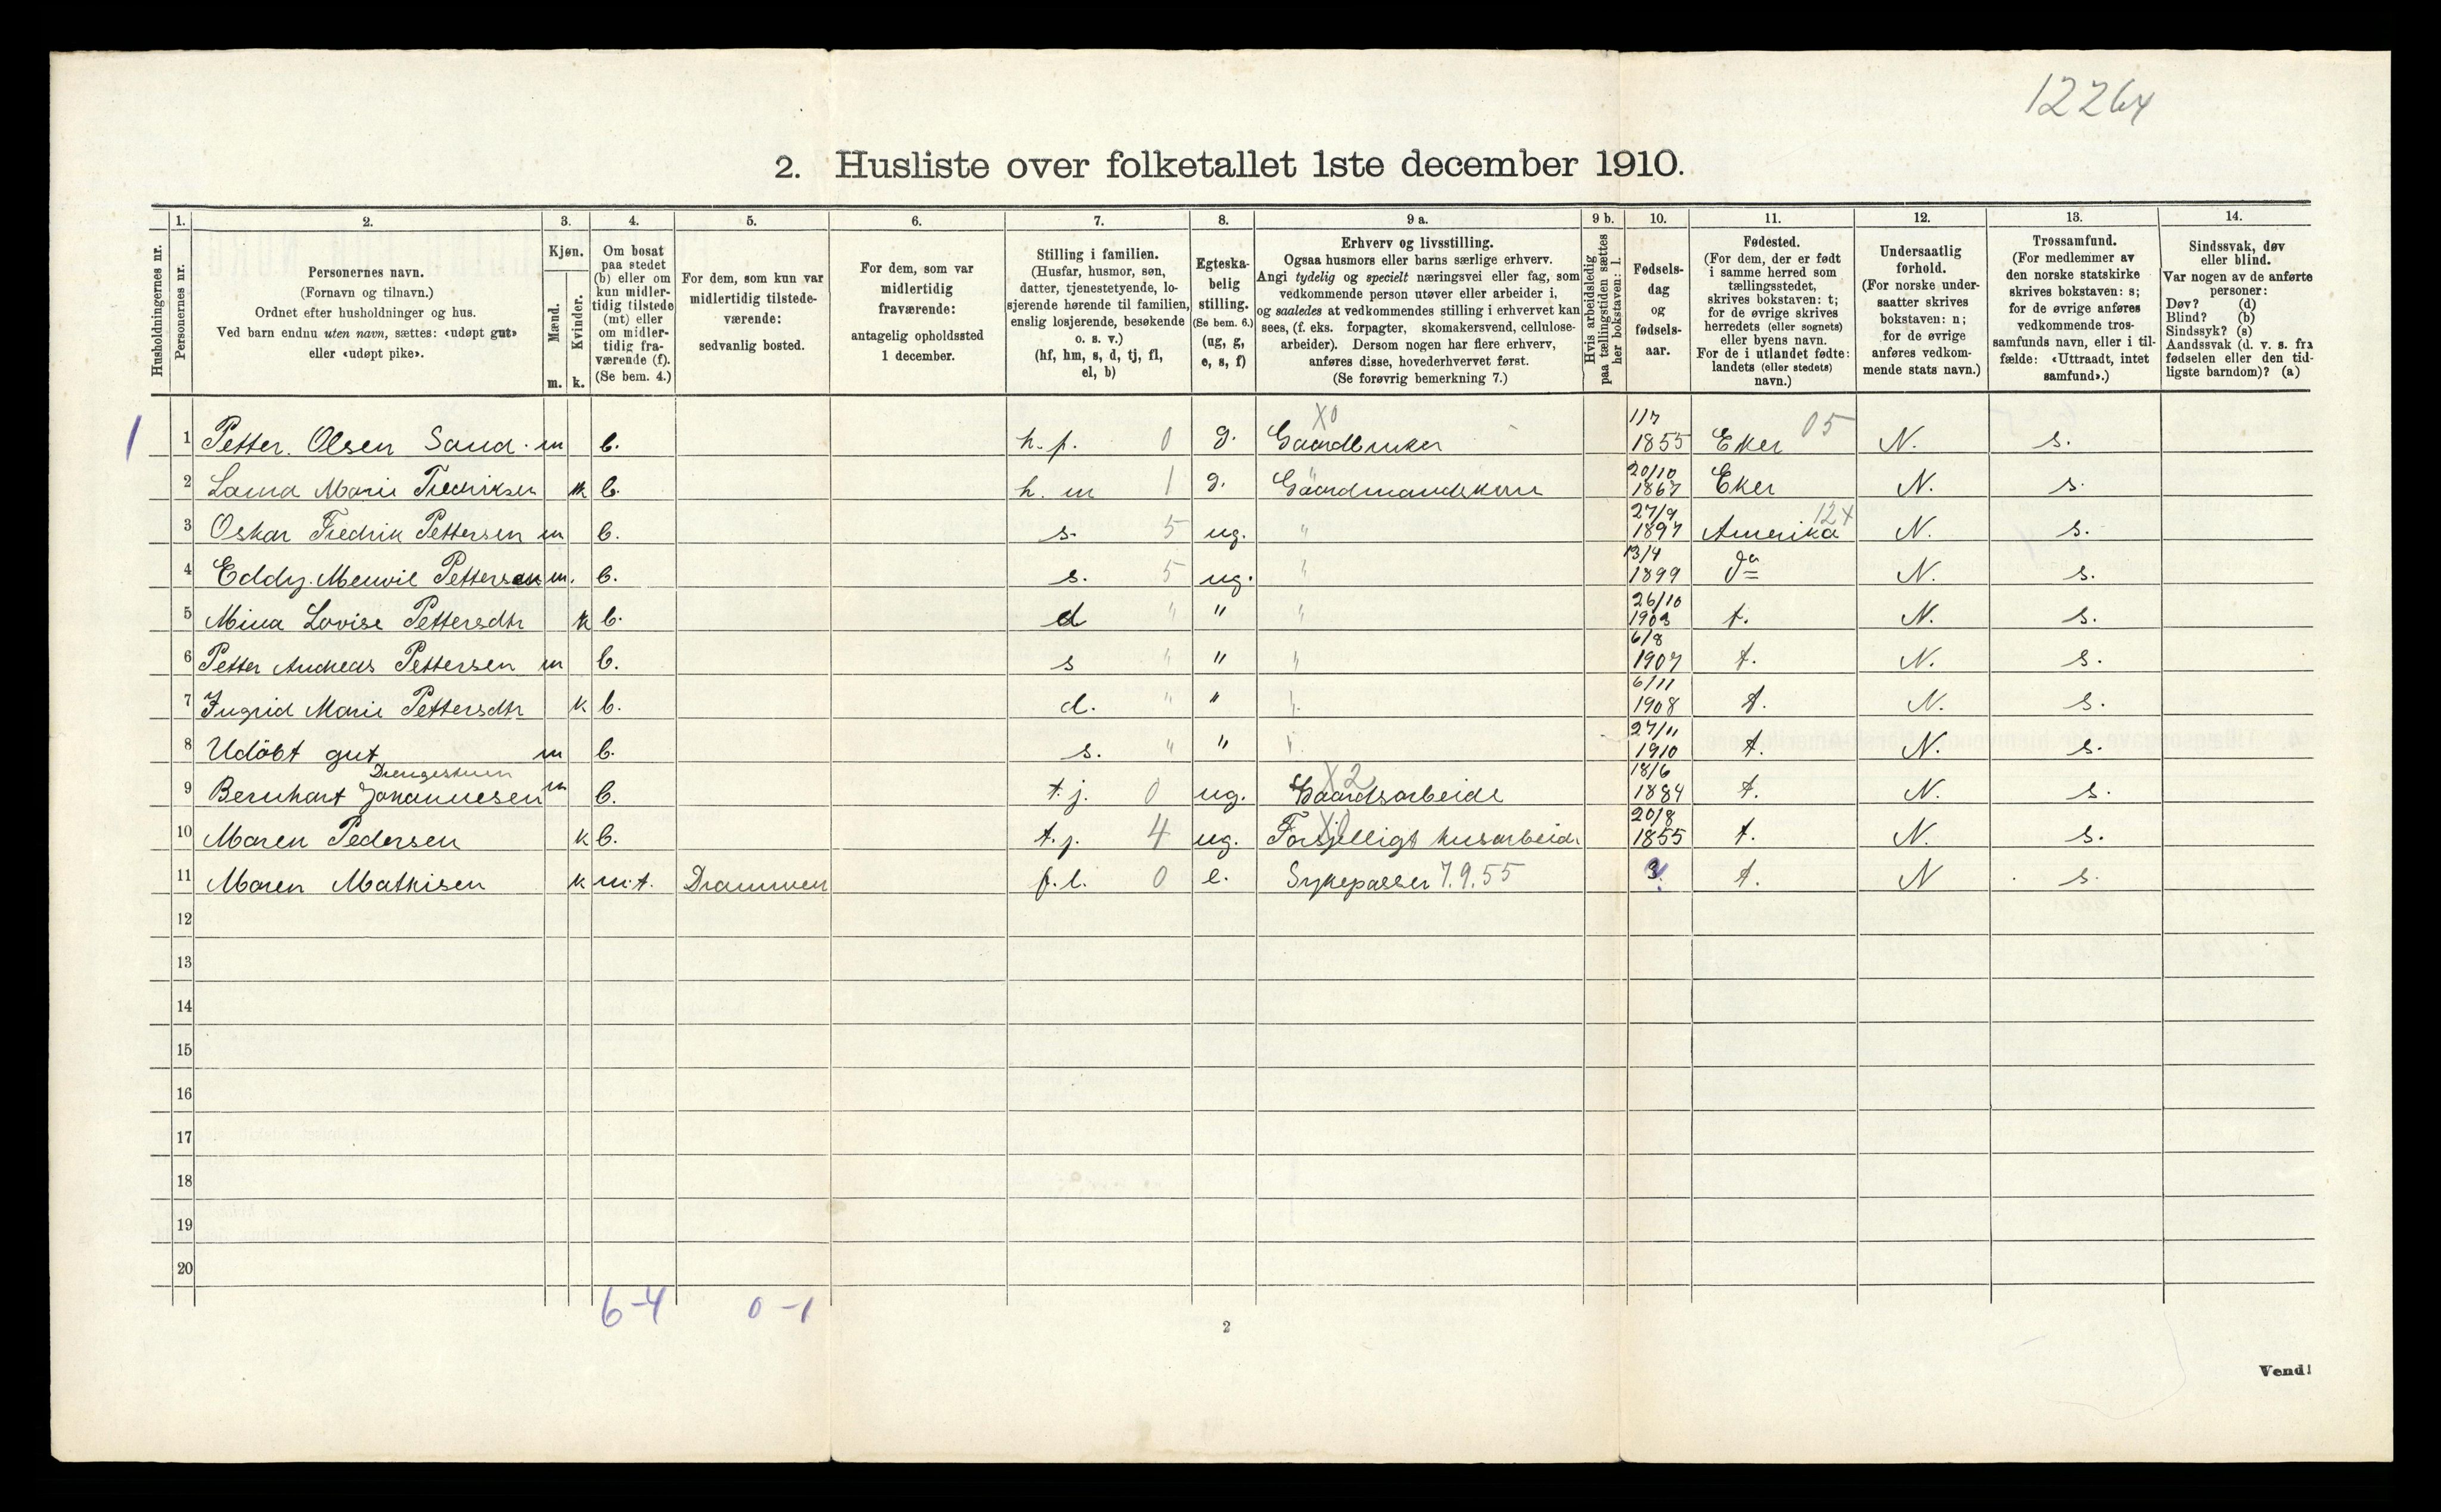 12264
2. Husliste over folketallet 1ste december 1910.
Husholdningernes nr.
1. Personernes nr.
2. Personernes navn. (Fornavn og tilnavn.) Ordnet efter husholdninger og hus. Ved barn endnu uten navn, sættes: «udøpt gut» eller «udøpt pike».
3. Kjøn. Mænd. m. Kvinder. k.
4. Om bosat paa stedet (b) eller om kun midlertidig tilstede (mt) eller om midlertidig fraværende (f). (Se bem. 4.)
5. For dem, som kun var midlertidig tilstedeværende: sedvanlig bosted.
6. For dem, som var midlertidig fraværende: antagelig opholdssted 1 december.
7. Stilling i familien. (Husfar, husmor, søn, datter, tjenestetyende, losjerende hørende til familien, enslig losjerende, besøkende o. s. v.) (hf, hm, s, d, tj, fl, el, b)
8. Egteskabelig stilling. (Se bem. 6.) (ug, g, e, s, f)
9 a. Erhverv og livsstilling. Ogsaa husmors eller barns særlige erhverv. Angi tydelig og specielt næringsvei eller fag, som vedkommende person utøver eller arbeider i, og saaledes at vedkommendes stilling i erhvervet kan sees, (f. eks. forpagter, skomakersvend, cellulosearbeider). Dersom nogen har flere erhverv, anføres disse, hovederhvervet først. (Se forøvrig bemerkning 7.)
9 b. Hvis arbeidsledig paa tællingstiden sættes her bokstaven: l.
10. Fødselsdag og fødselsaar.
11. Fødested. (For dem, der er født i samme herred som tællingsstedet, skrives bokstaven: t; for de øvrige skrives herredets (eller sognets) eller byens navn. For de i utlandet fødte: landets (eller stedets) navn.)
12. Undersaatlig forhold. (For norske undersaatter skrives bokstaven: n; for de øvrige anføres vedkommende stats navn.)
13. Trossamfund. (For medlemmer av den norske statskirke skrives bokstaven: s; for de øvrige anføres vedkommende trossamfunds navn, eller i tilfælde: «Uttraadt, intet samfund».)
14. Sindssvak, døv eller blind. Var nogen av de anførte personer: Døv? (d) Blind? (b) Sindssyk? (s) Aandssvak (d. v. s. fra fødselen eller den tidligste barndom)? (a)
1 1 Petter. Olsen Sand. m b. h. f. 0 g. X0 Gaardbruker 1/7 1855 Eker 05 N. s.
2 Laura Marie Fredriksen k b. h. m 1 g. Gaardmandskone 20/10 1867 Eker N. s.
3 Oskar Fredrik Pettersen m b. s. 5 ug. " 27/9 1897 Amerika 124 N. s.
4 Eddy. Menvil Pettersen m. b. s. 5 ug. " 13/4 1899 da N. s.
5 Mina Lovise Pettersdtr k b. d " " " 26/10 1903 t. N. s.
6 Petter Andreas Pettersen m b. s " " " 6/8 1907 t. N. s.
7 Ingrid Marie Pettersdtr k b. d. " " " 6/11 1908 t. N. s.
8 Udöbt gut m b. s. " " " 27/11 1910 t. N. s.
Drengestuen
9 Bernhart Johannesen m b. t.j. 0 ug. X2 Gaardsarbeide 18/6 1884 t. N. s.
10 Maren Pedersen k b. t.j. 4 ug. Forsjelligt husarbeide 20/8 1855 t. N. s.
11 Maren Mathisen k m.t. Drammen f.l. 0 e. Sykepasser 7.9.55 t. N s.
12
13
14
15
16
17
18
19
20
6-4 0-1
2
Vend!